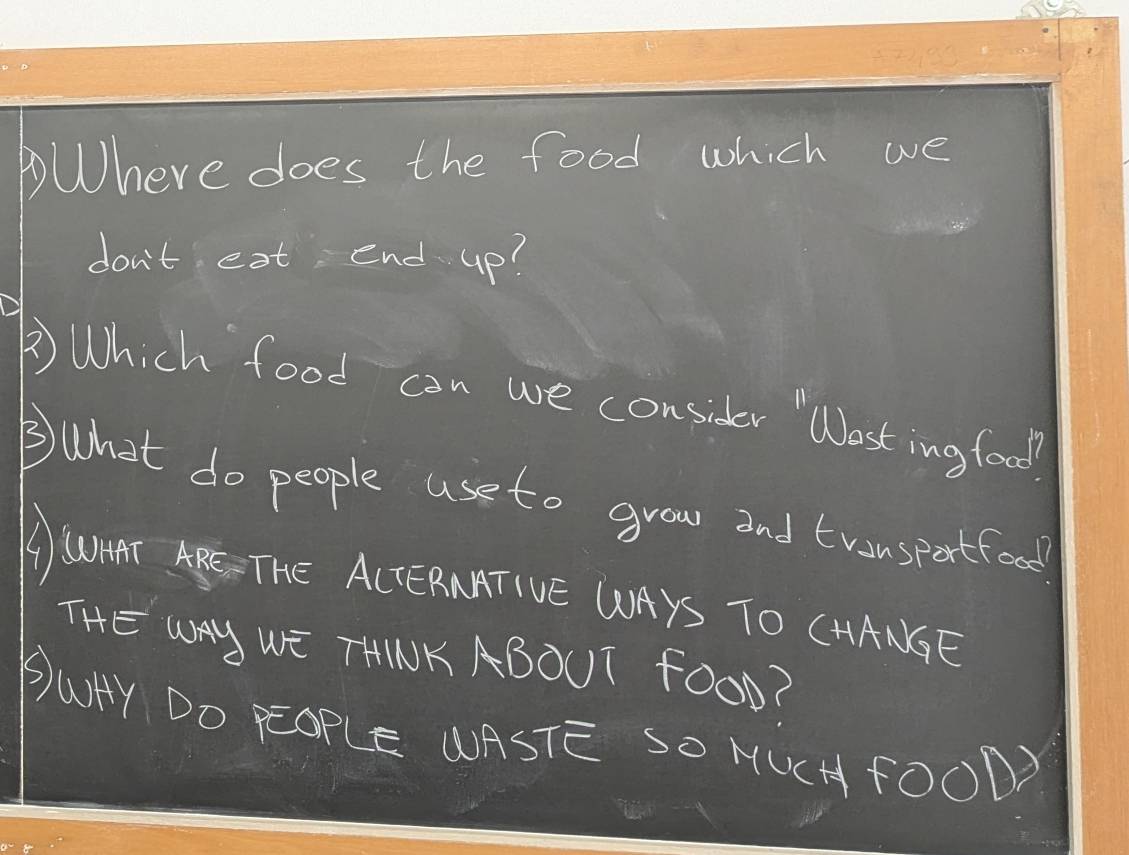 1) Where does the food which we
don't eat end up?
2) Which food can we consider "Wasting food"?
3) What do people use to grow and transport food?
4) WHAT ARE THE ALTERNATIVE WAYS TO CHANGE
THE WAY WE THINK ABOUT FOOD?
5) WHY DO PEOPLE WASTE SO MUCH FOOD?